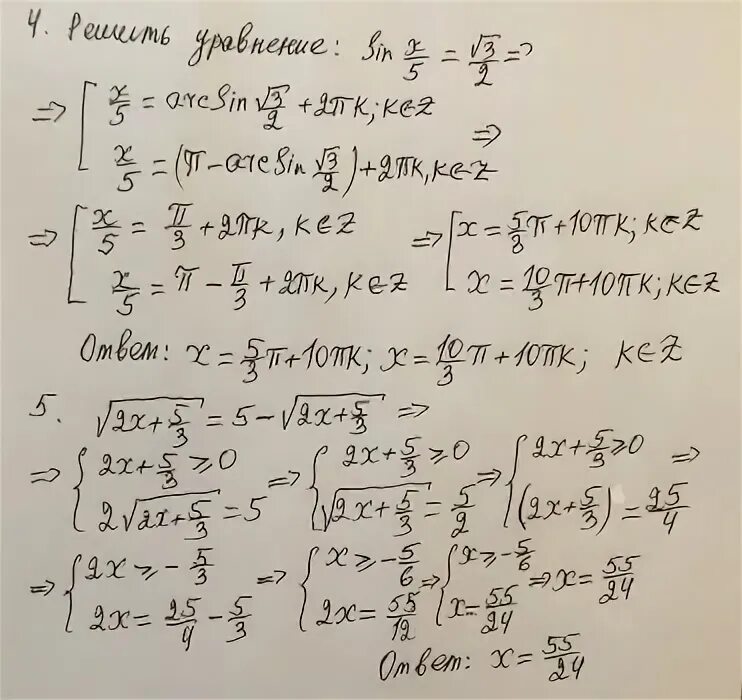 4. Решить уравнение: sin x/5 = √3/2 =>
=> [ x/5 = arcsin √3/2 + 2πk; k∈Z
x/5 = (π - arcsin √3/2) + 2πk, k∈Z =>
=> [ x/5 = π/3 + 2πk, k∈Z => [ x = 5/3 π + 10πk; k∈Z
x/5 = π - π/3 + 2πk, k∈Z x = 10/3 π + 10πk; k∈Z
Ответ: x = 5/3 π + 10πk; x = 10/3 π + 10πk; k∈Z
5. √(2x + 5/3) = 5 - √(2x + 5/3) =>
=> { 2x + 5/3 ≥ 0 => { 2x + 5/3 ≥ 0 => { 2x + 5/3 ≥ 0 =>
2√(2x + 5/3) = 5 √(2x + 5/3) = 5/2 (2x + 5/3) = 25/4
=> { 2x ≥ - 5/3 => { x ≥ - 5/6 => { x ≥ - 5/6 => x = 55/24
2x = 25/4 - 5/3 2x = 55/12 x = 55/24
Ответ: x = 55/24